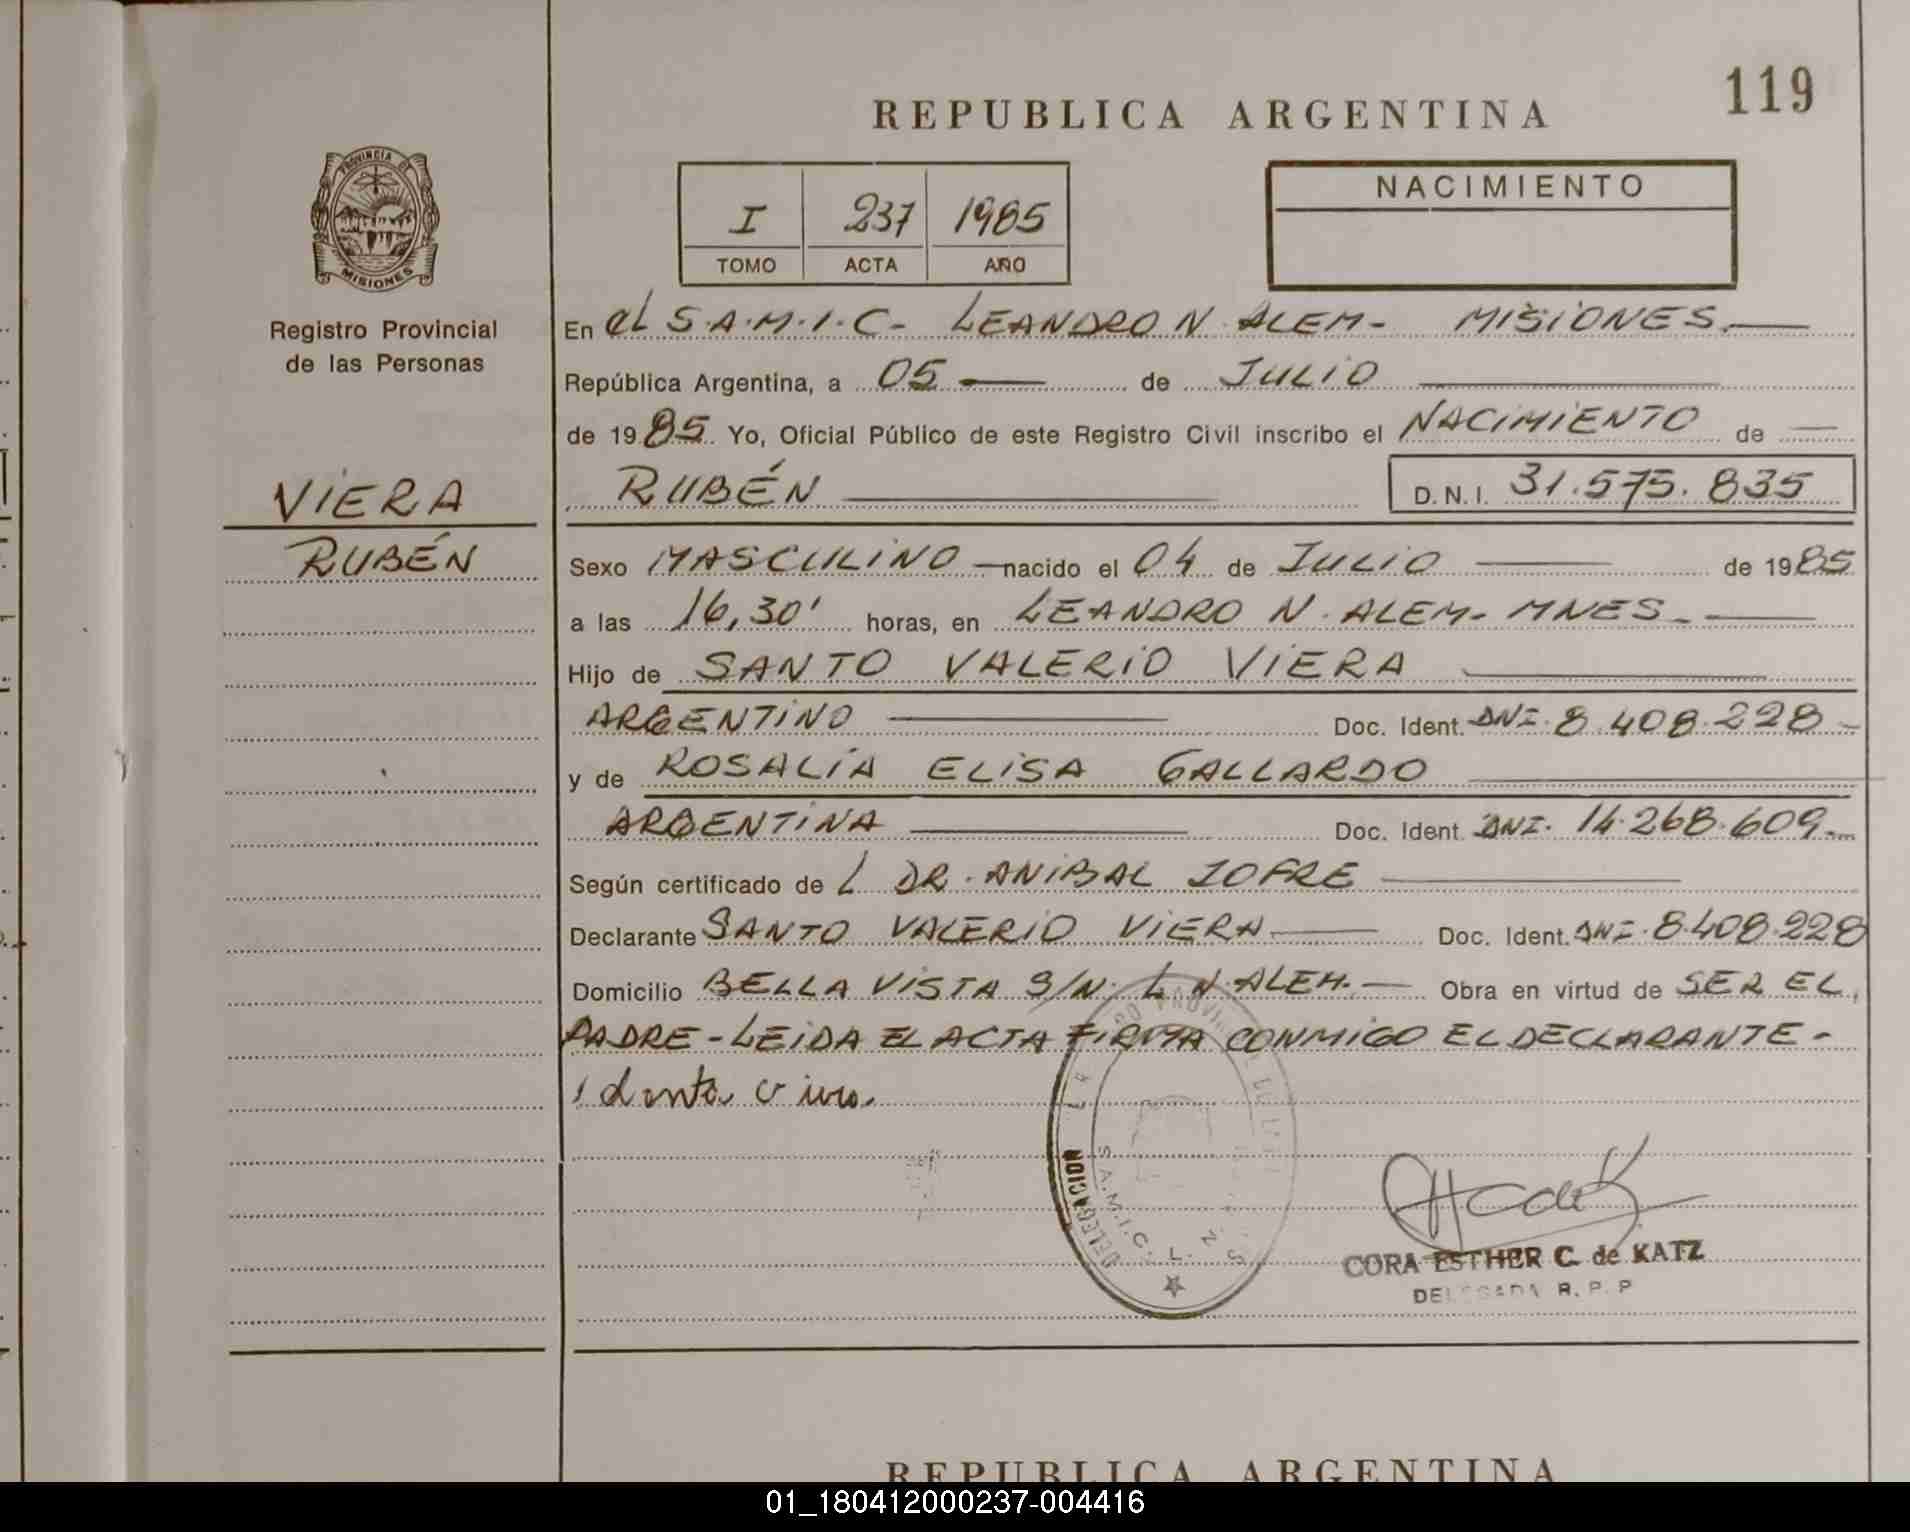 119
REPUBLICA ARGENTINA
PROVINCIA DE
MISIONES
Registro Provincial
de las Personas
I 237 1985
TOMO ACTA AÑO
NACIMIENTO
En el S.A.M.I.C- LEANDRO N. ALEM- MISIONES.
República Argentina, a 05 de JULIO
de 1985 Yo, Oficial Público de este Registro Civil inscribo el NACIMIENTO de
RUBÉN D.N.I. 31.575.835
VIERA
RUBÉN
Sexo MASCULINO nacido el 04 de JULIO de 1985
a las 16,30' horas, en LEANDRO N. ALEM- MNES.
Hijo de SANTO VALERIO VIERA
ARGENTINO Doc. Ident. DNI. 8.408.228
y de ROSALÍA ELISA GALLARDO
ARGENTINA Doc. Ident. DNI. 14.268.609.
Según certificado de L DR. ANIBAL JOFRE
Declarante SANTO VALERIO VIERA Doc. Ident. DNI. 8.408.228
Domicilio BELLA VISTA S/N. L N ALEM. Obra en virtud de SER EL
PADRE - LEIDA EL ACTA FIRMA CONMIGO EL DECLARANTE -
DELEGACION
S.A.M.I.C. L. N.
CORA ESTHER C. de KATZ
DELEGADA R. P. P
REPUBLICA ARGENTINA
01_180412000237-004416